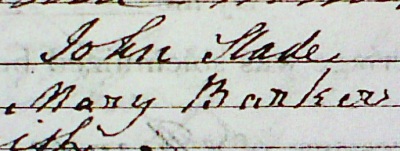 John Slade
Mary Barker